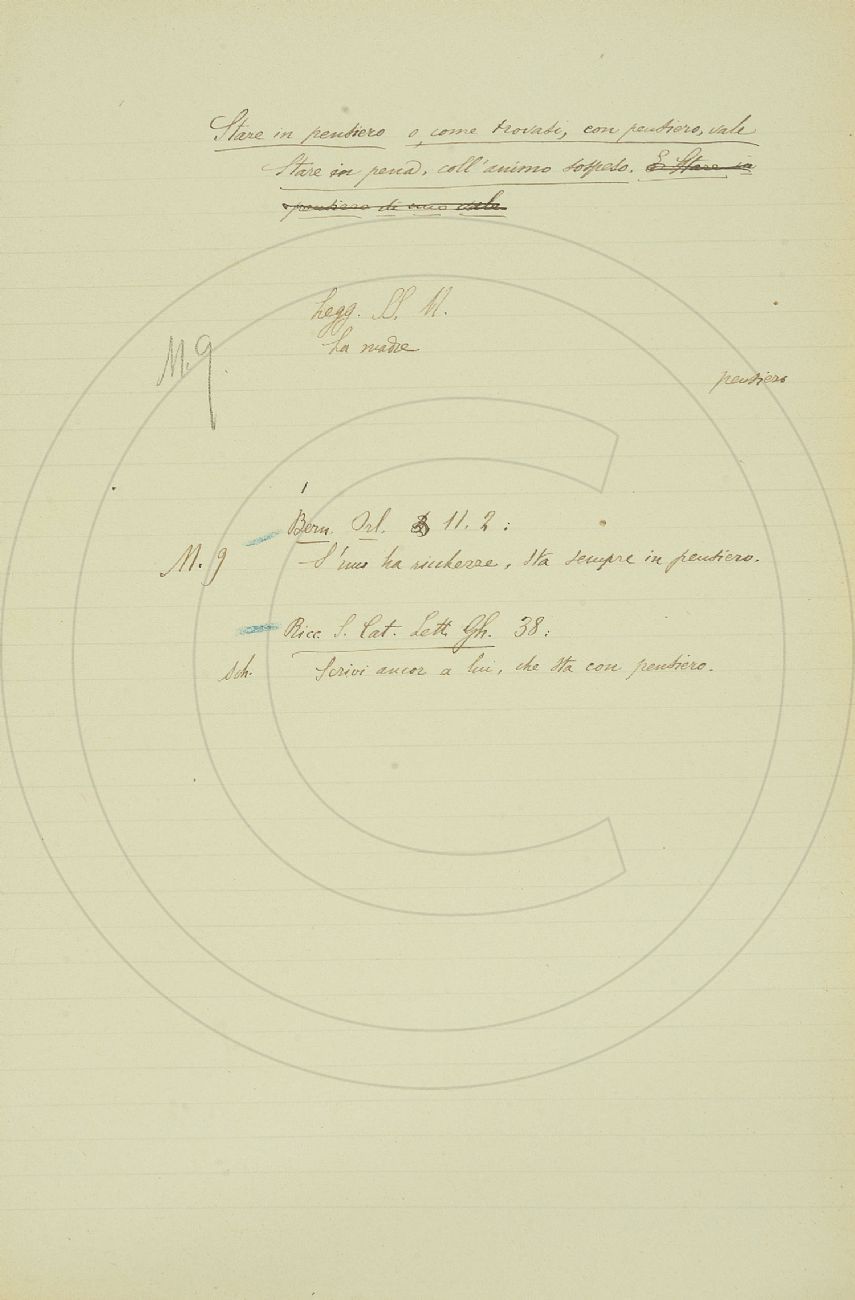 Stare in pensiero o, come trovasi, con pensiero, vale
Stare in pena, coll'animo sospeso. E Stare in
pensiero di uno vale
Legg. SS. M.
La madre
M. 9.
pensiero
Bern. Orl. 11. 2:
M. 9 S'uno ha ricchezze, sta sempre in pensiero.
Ricc. S. Cat. Lett. Gh. 38:
Sch. Scrivi ancor a lui, che sta con pensiero.